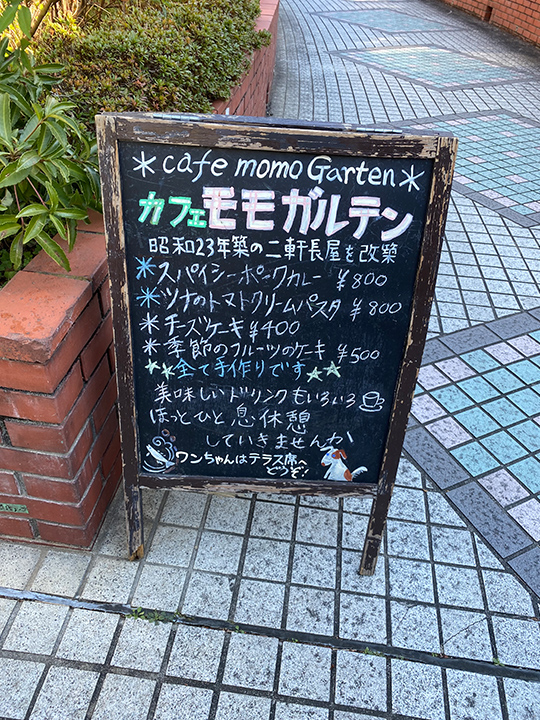 *cafe momo Garten*
カフェモモガルテン
昭和23年築の二軒長屋を改築
*スパイシーポークカレー ¥800
*ツナのトマトクリームパスタ ¥800
*チーズケーキ ¥400
*季節のフルーツのケーキ ¥500
☆全て手作りです☆☆
美味しいドリンクもいろいろ
ほっとひと息休憩
していきませんか
ワンちゃんはテラス席へ
どうぞ!